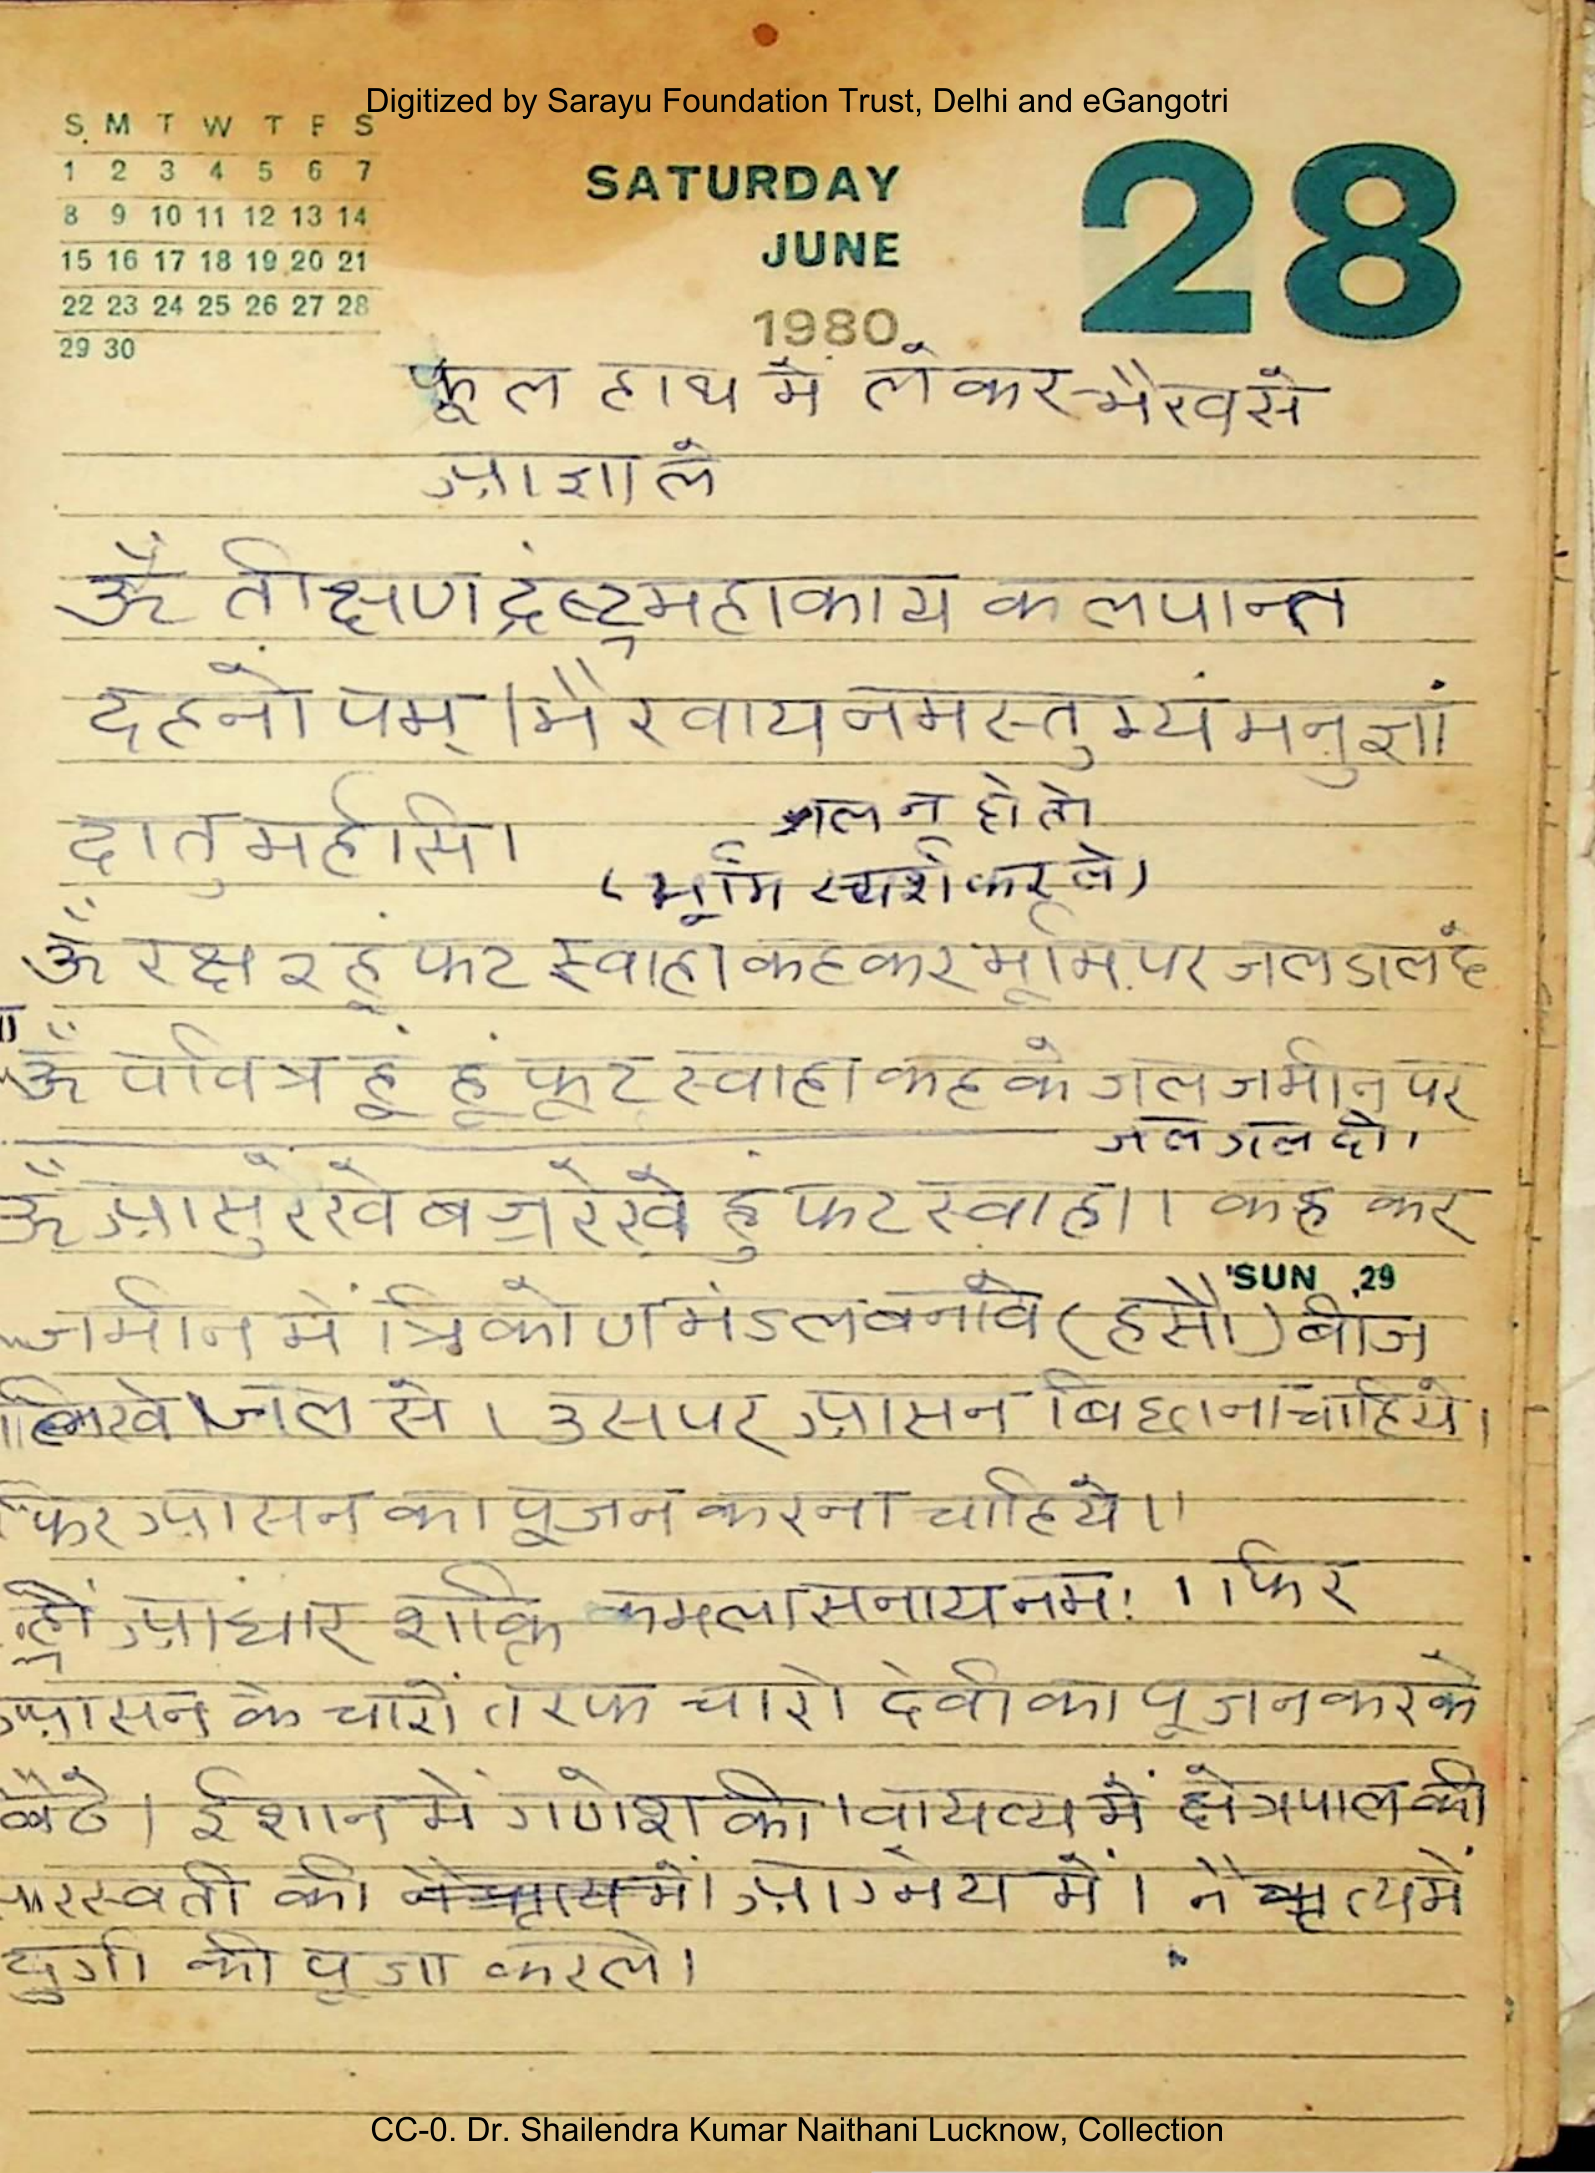 Digitized by Sarayu Foundation Trust, Delhi and eGangotri
S M T W T F S
1 2 3 4 5 6 7
8 9 10 11 12 13 14
15 16 17 18 19 20 21
22 23 24 25 26 27 28
29 30
SATURDAY
JUNE
1980
28
फूल हाथ में लेकर भैरव से
आज्ञा ले
ॐ तीक्षण द्रंष्ट्र महाकाय कलपान्त
दहनोपम् । भैरवाय नमस्तुभ्यं मनुज्ञां
दातुमर्हसि ।
जल न हो तो
(भूमि स्पर्श कर ले)
ॐ रक्ष २ हूं फट स्वाहा कहकर भूमि पर जल डाल दे
ॐ पवित्र हूं हूं फूट स्वाहा कह के जल जमीन पर
जल डाल दो ।
ॐ आसुरेखे बज्ररेखे हुं फट स्वाहा । । कह कर
SUN 29
जमीन में त्रिकोण मंडल बनावे (हसौ) बीज
लिखे जल से । उस पर आसन बिछाना चाहिये ।
फिर आसन का पूजन करना चाहिये ।।
ह्रीं आधार शक्ति कमलासनाय नमः ।। फिर
आसन के चारों तरफ चारो देवी का पूजन करके
बैठे । ईशान में गणेश की । वायव्य में क्षेत्रपाल की
सरस्वती की आग्नेय में । नैऋत्य में
दुर्गा की पूजा करले ।
CC-0. Dr. Shailendra Kumar Naithani Lucknow, Collection